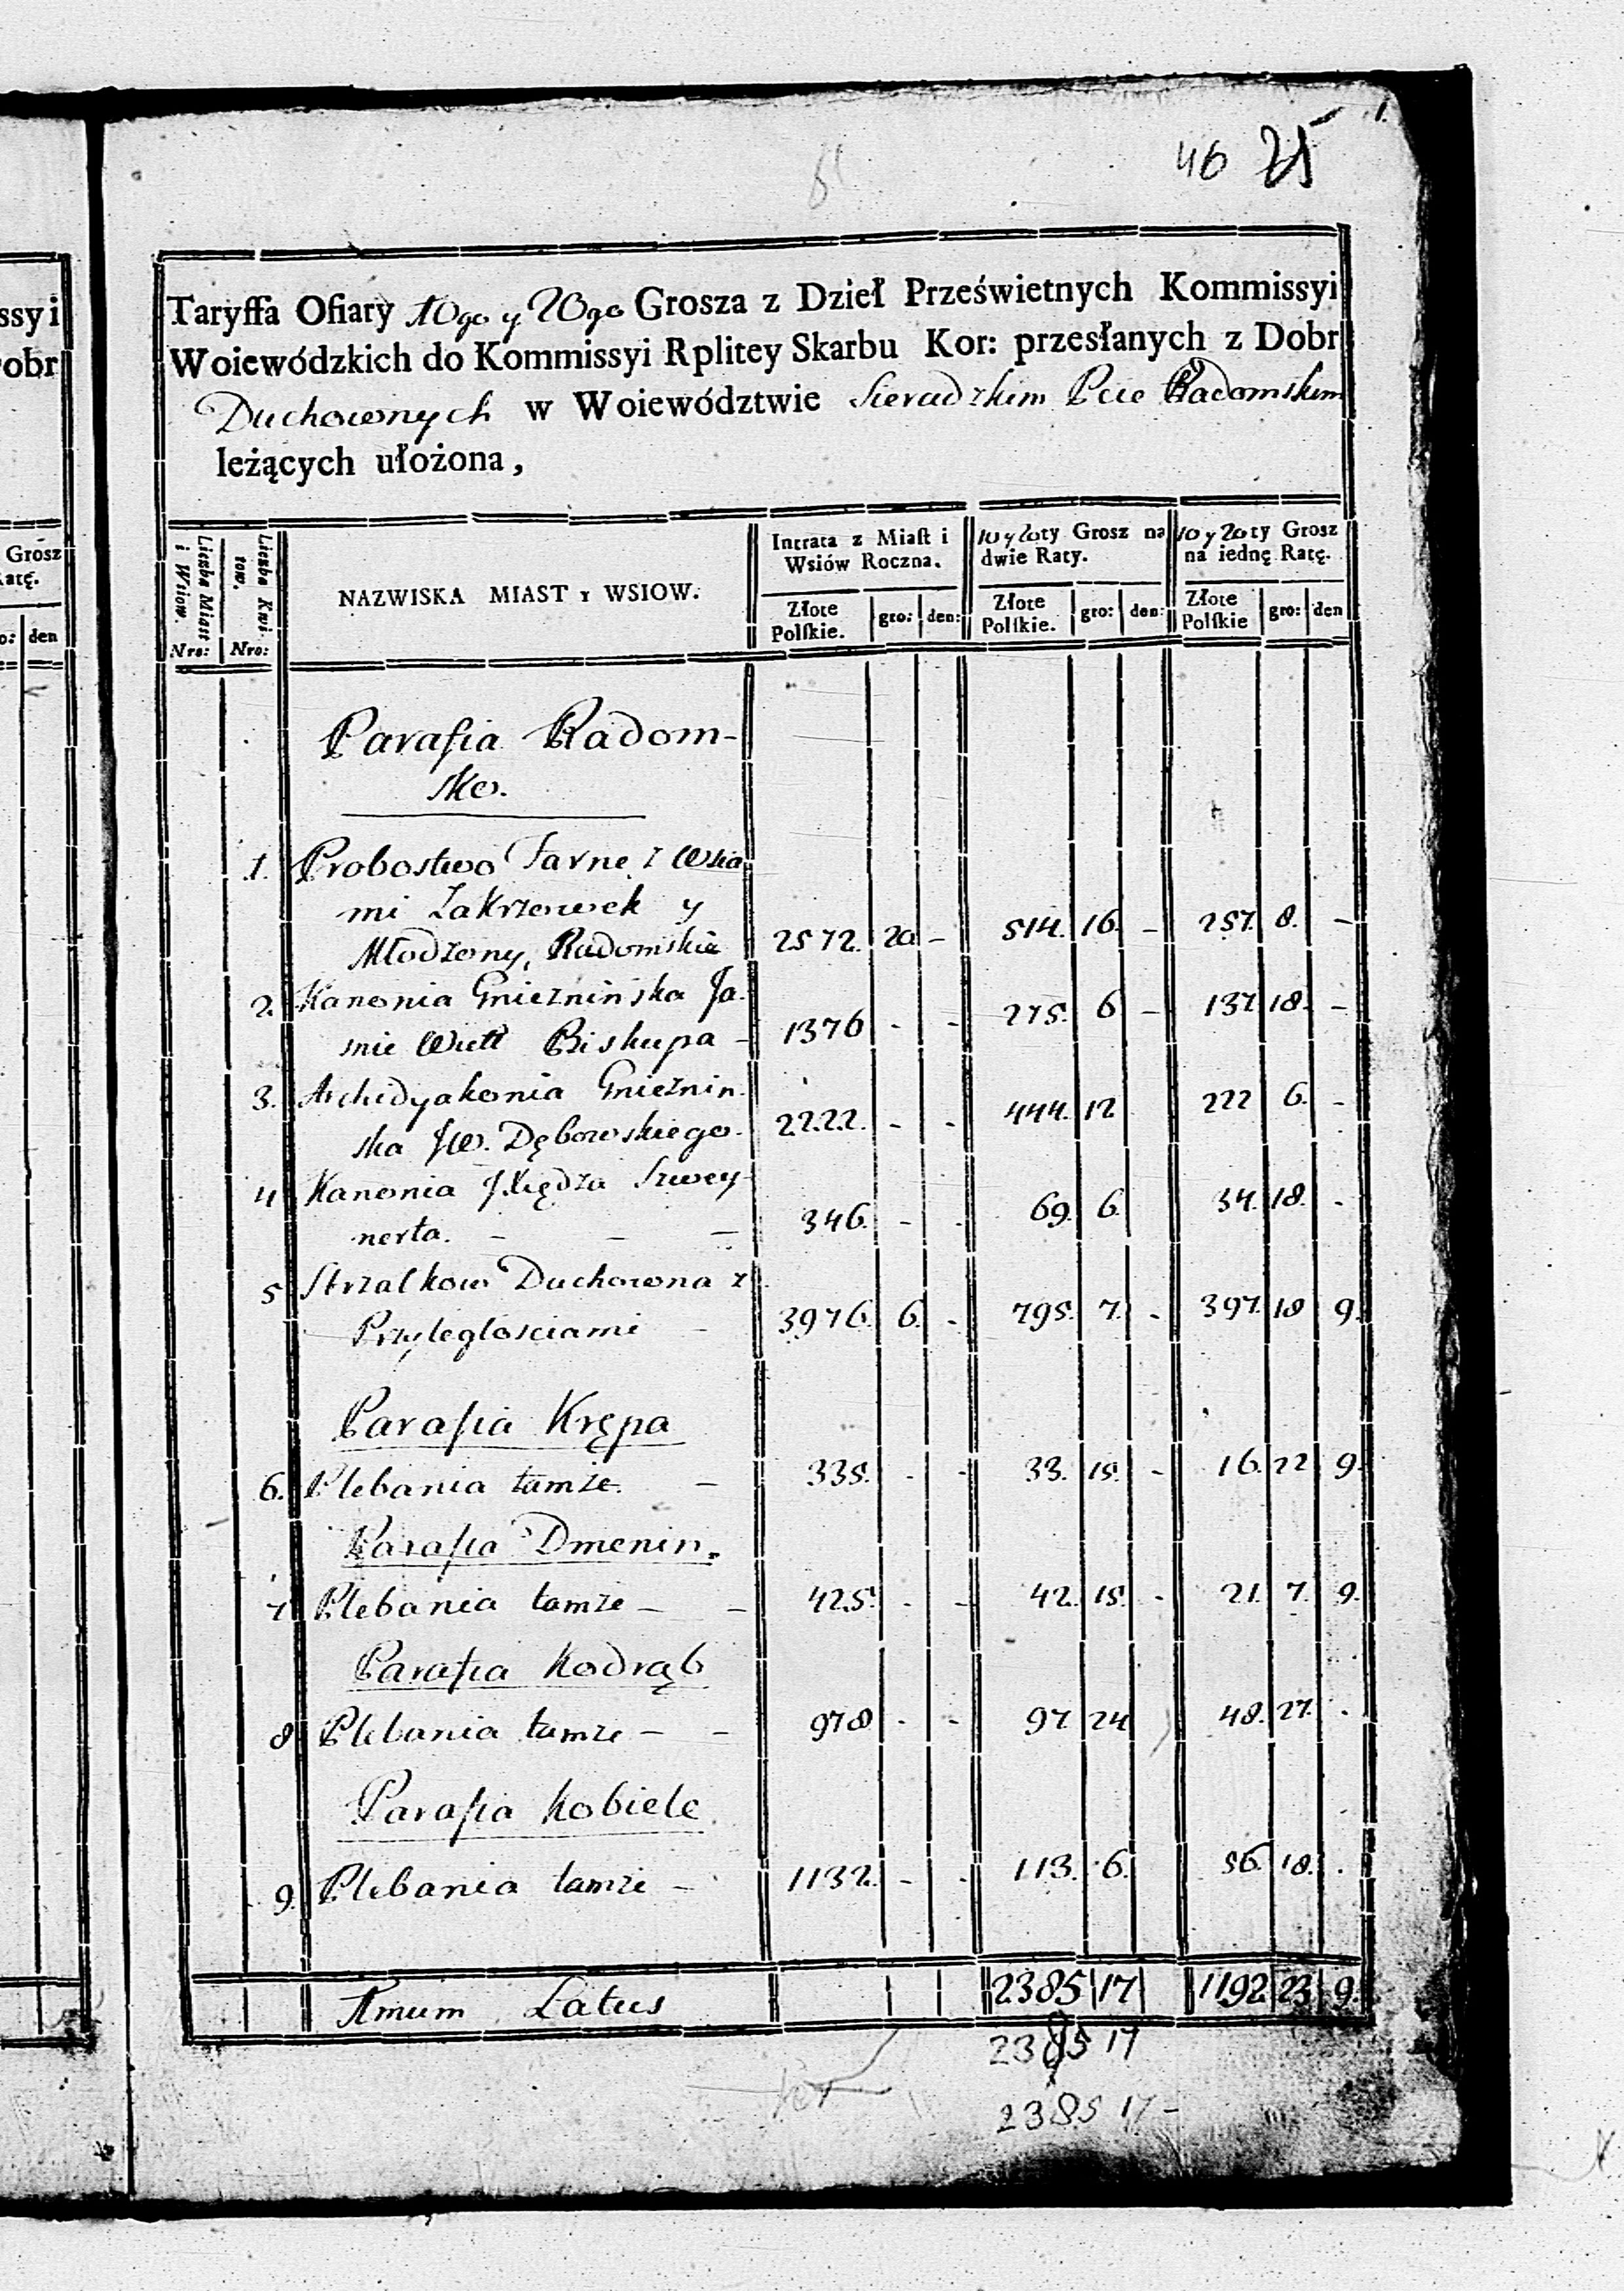 ssyi
obr
Grosz
Ratę.
o: den
1.
46 25
Taryffa Ofiary 10go y 20go Grosza z Dzieł Prześwietnych Kommissyi
Woiewódzkich do Kommissyi Rplitey Skarbu Kor: przesłanych z Dobr
Duchownych w Woiewództwie Sieradzkim Pcie Radomskim
leżących ułożona,
Liczba Miast i Wsiow. Nro:
Liczba Kwitow. Nro:
NAZWISKA MIAST Y WSIOW.
Intrata z Miast i Wsiów Roczna.
10 y 20ty Grosz na dwie Raty.
10 y 20ty Grosz na iednę Ratę.
Złote Polskie. gro: den: Złote Polskie. gro: den: Złote Polskie gro: den
Parafia Radom-
sko.
1. Probostwo Farne z Wsia
mi Zakrzowek y
Młodzowy, Radomskie 2572. 20 - 514. 16. - 257. 8. -
2. Kanonia Gnieznińska Ja-
snie Wiel Biskupa - 1376 - - 275. 6 - 137. 18. -
3. Archidyakonia Gnieznin-
ska JW. Dębowskiego. 2222. - - 444. 12 222 6. -
4 Kanonia JXiędza Szwey-
nerta. - - - 346. - - 69. 6. 34. 18. -
5 Strzalkow Duchowna z
Przyległosciami - 3976. 6. - 795. 7. - 397. 18 9.
Parafia Krępa
6. Plebania tamże. - 335. - - 33. 15. - 16. 22 9.
Parafia Dmenin.
7 Plebania tamze - - 425. - - 42. 15. - 21. 7. 9.
Parafia Kodrąb
8 Plebania tamze - - 978 - - 97. 24 48. 27. -
Parafia Kobiele
9. Plebania tamze - 1132. - - 113. 6. 56. 18. .
1mum Latus 2385 17 1192 23 9.
2385 17
2385 17 -